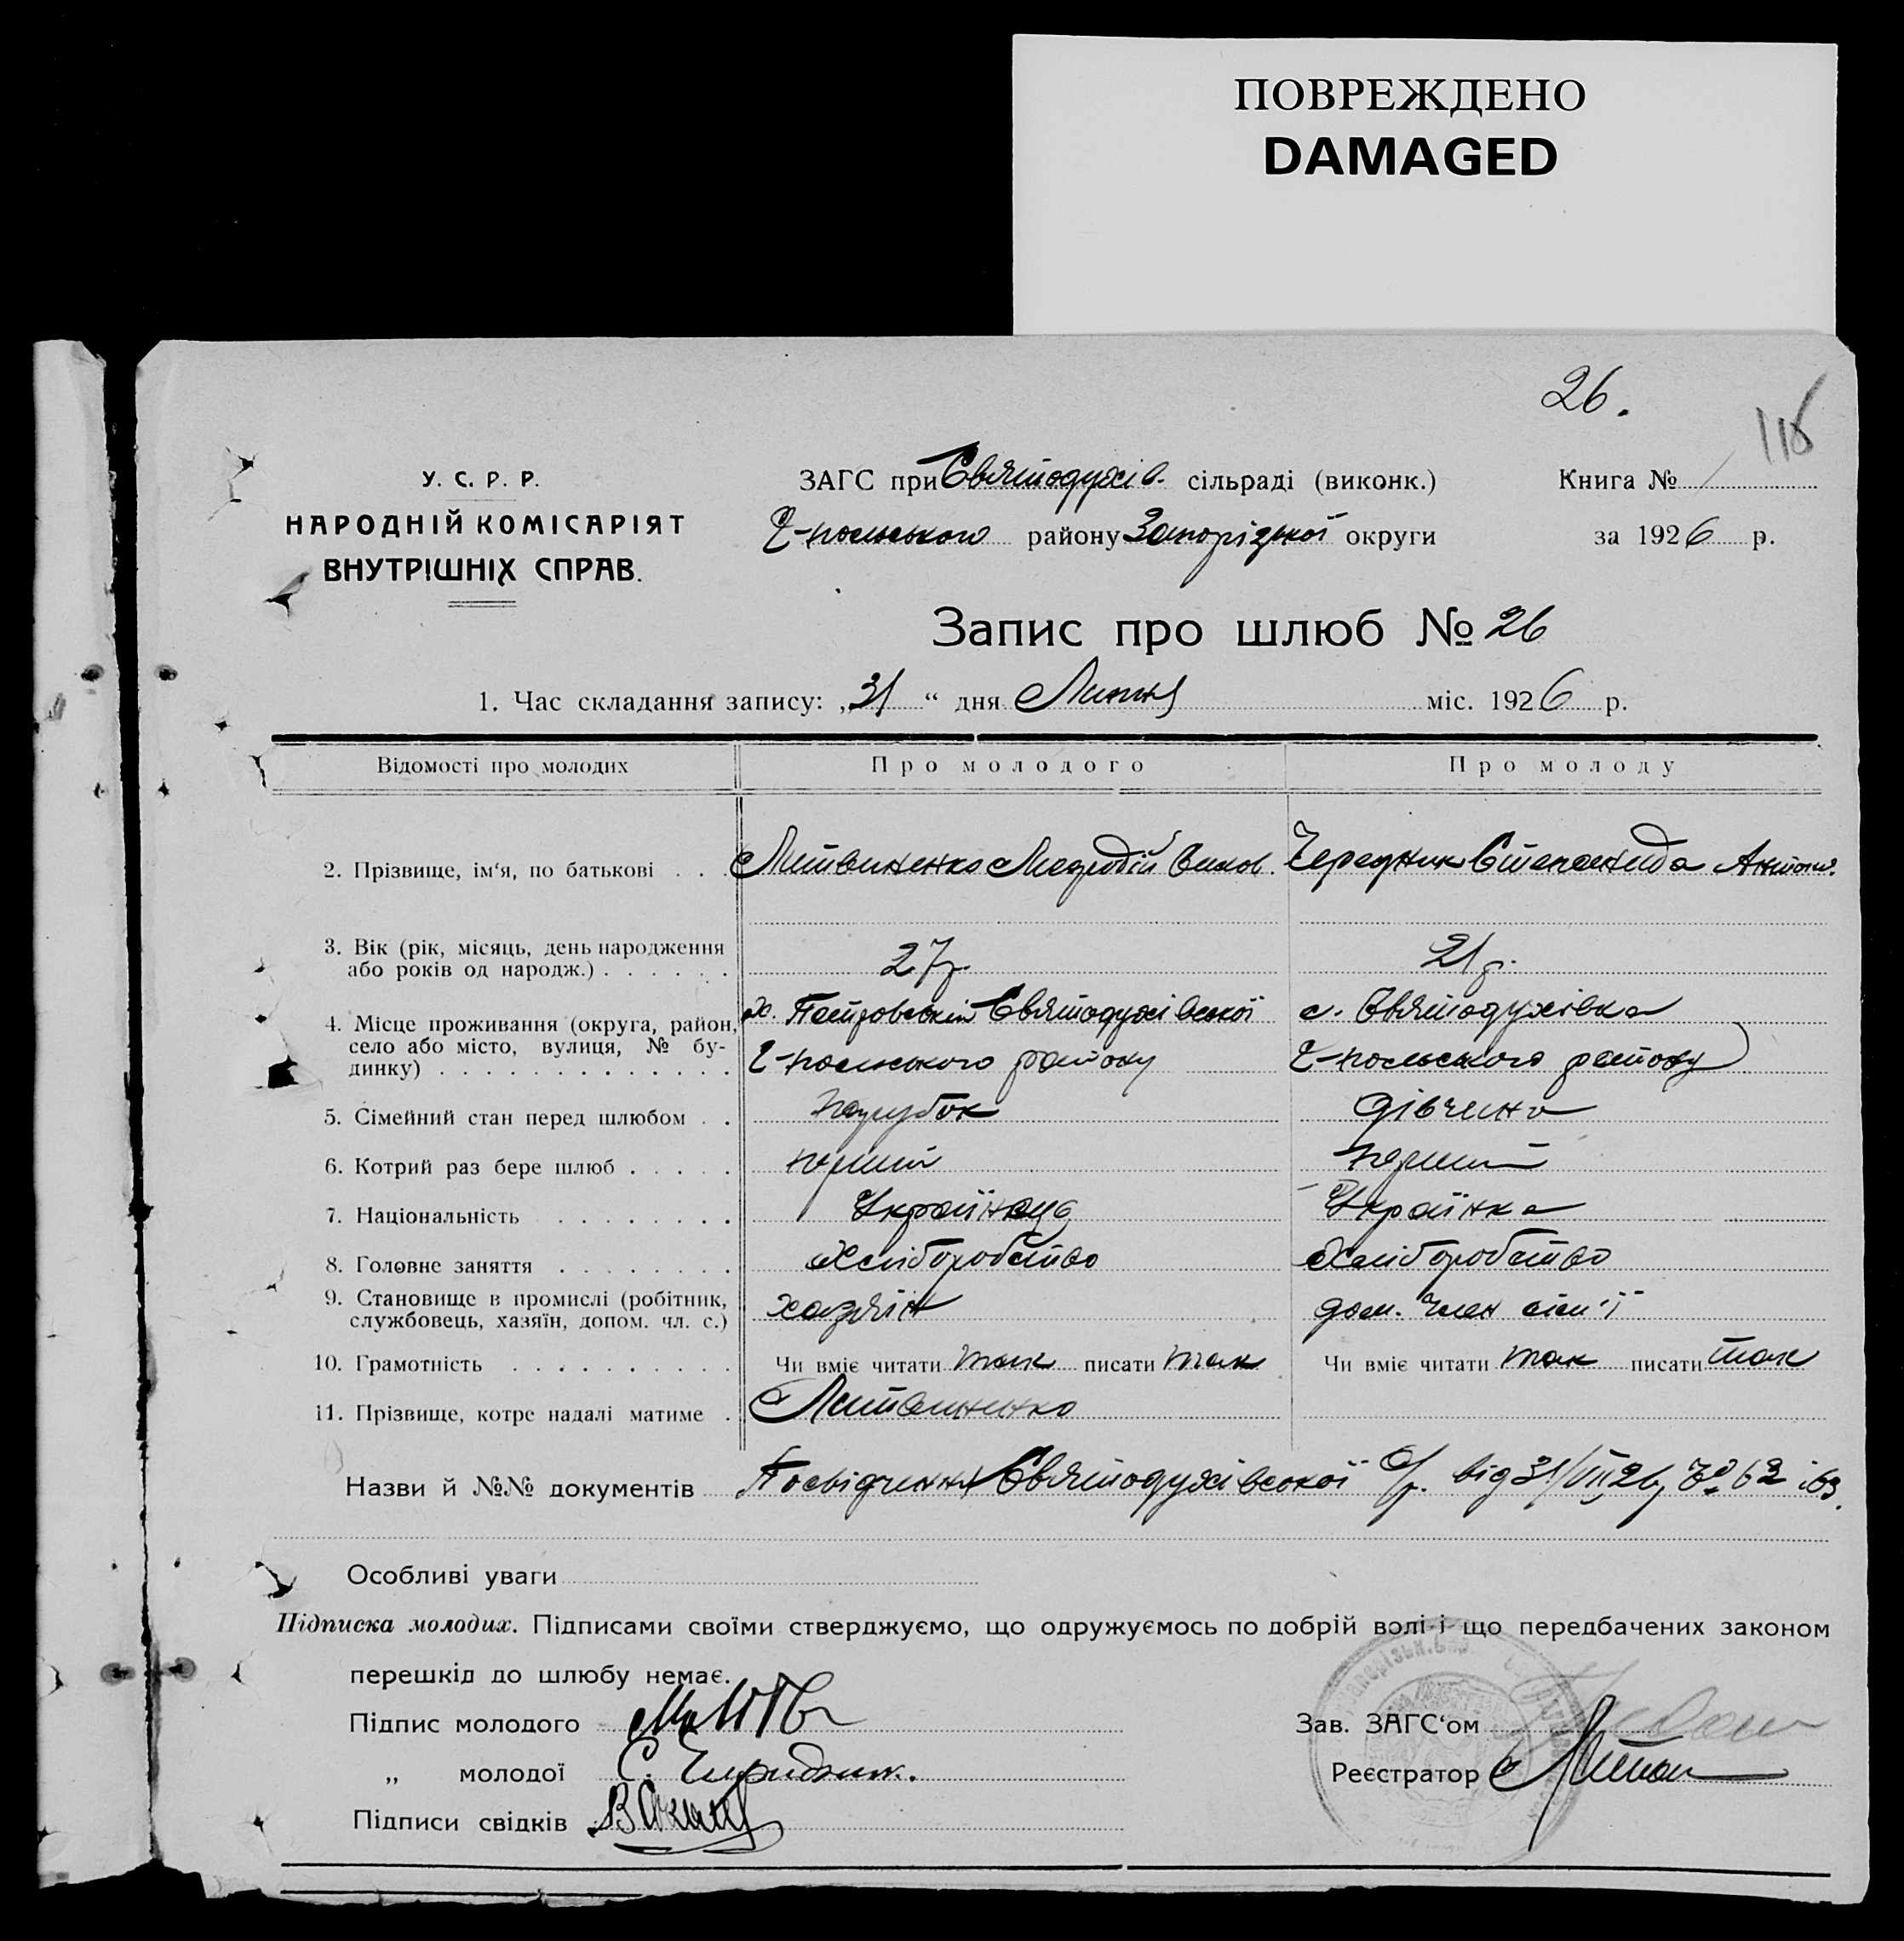 ПОВРЕЖДЕНО
DAMAGED
26.
116
У. С. Р. Р.
НАРОДНІЙ КОМІСАРІЯТ
ВНУТРІШНІХ СПРАВ.
ЗАГС при Святодухів. сільраді (виконк.)
Книга №
Ч-польського району Запорізької округи
за 1926 р.
Запис про шлюб № 26
1. Час складання запису: „31“ дня Липня міс. 1926 р.
Відомості про молодих
Про молодого
Про молоду
2. Прізвище, ім‘я, по батькові . . .
Литвиненко Меркодій
Чередник Степанида Антон.
3. Вік (рік, місяць, день народження
або років од народж.) . . . . . .
27 р.
21 р.
4. Місце проживання (округа, район,
село або місто, вулиця, № бу-
динку) . . . . . . . . . . . . .
х. Петровській Святодухівської
Ч-польського району
с. Святодухівка
Ч-польського району
5. Сімейний стан перед шлюбом . .
парубок
дівчина
6. Котрий раз бере шлюб . . . . .
перший
перший
7. Національність . . . . . . . .
Українець
Українка
8. Головне заняття . . . . . . . .
Хліборобство
Хліборобство
9. Становище в промислі (робітник,
службовець, хазяїн, допом. чл. с.)
хазяїн
дом. член сім'ї
10. Грамотність . . . . . . . . . .
Чи вміє читати так писати так
Чи вміє читати так писати так
11. Прізвище, котре надалі матиме .
Литвиненко
Назви й №№ документів Посвідчення Святодухівської С/р. від 31/VII 26, № 62 і 63.
Особливі уваги
Підписка молодих. Підписами своїми стверджуємо, що одружуємось по добрій волі і що передбачених законом
перешкід до шлюбу немає.
Підпис молодого
Зав. ЗАГС‘ом
„ молодої С. Чиридник.
Реєстратор
Підписи свідків